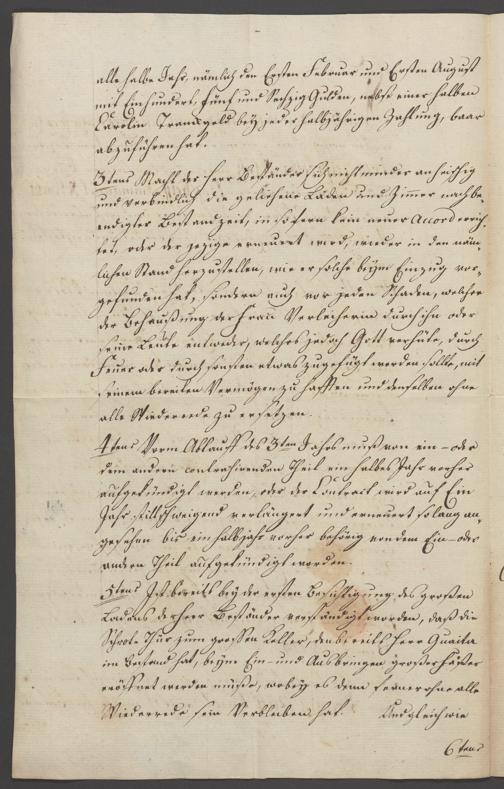 alle halbe Jahr, nämlich den Ersten Februar und Ersten August
mit Einhundert, Fünf und Sechzig Gulden, nebst einer halben
Carolin Tranckgeld bey jeder halbjährigen Zahlung, baar
abzuführen hat.
3tens Macht der Herr Beständer sich nicht minder anheischig
und verbindlich die geliehene Läden und Zimmer nach be-
endigter Bestandzeit, in sofern kein neuer Accord errich-
tet, oder der jezige erneuert wird, wieder in den näm-
lichen Stand herzustellen, wie er solche beym Einzug vor-
gefunden hat, sondern auch vor jeden Schaden, welcher
der Behaußung der Frau Verleiherin durch ihn oder
seine Leute entweder, welches jedoch Gott verhüte, durch
Feuer oder durch sonsten etwas zugefügt werden sollte, mit
seinem bereiten Vermögen zu hafften und denselben ohne
alle Wiederrede zu ersetzen.
4tens Vorm Ablauff des 3ten Jahrs muß von ein- oder
dem andern contrahirenden Theil ein halbes Jahr vorher
aufgekündigt werden, oder der Contract wird auf Ein
Jahr stillschweigend verlängert und erneuert so lang an-
gesehen bis ein halbjahr vorher behörig von dem Ein- oder
andern Theil aufgekündigt worden.
5tens Ist bereits bey der ersten Besichtigung des großen
Ladens der Herr Beständer verständigt worden, daß die
Schoote Thür zum grossen Keller, den bereits Herr Guaita
im Bestand hat, beym Ein- und Ausbringen grosser Fässer
eröffnet werden müsse, wobey es denn ferner ohne alle
Wiederrede sein Verbleiben hat. Und gleichwie
6tens